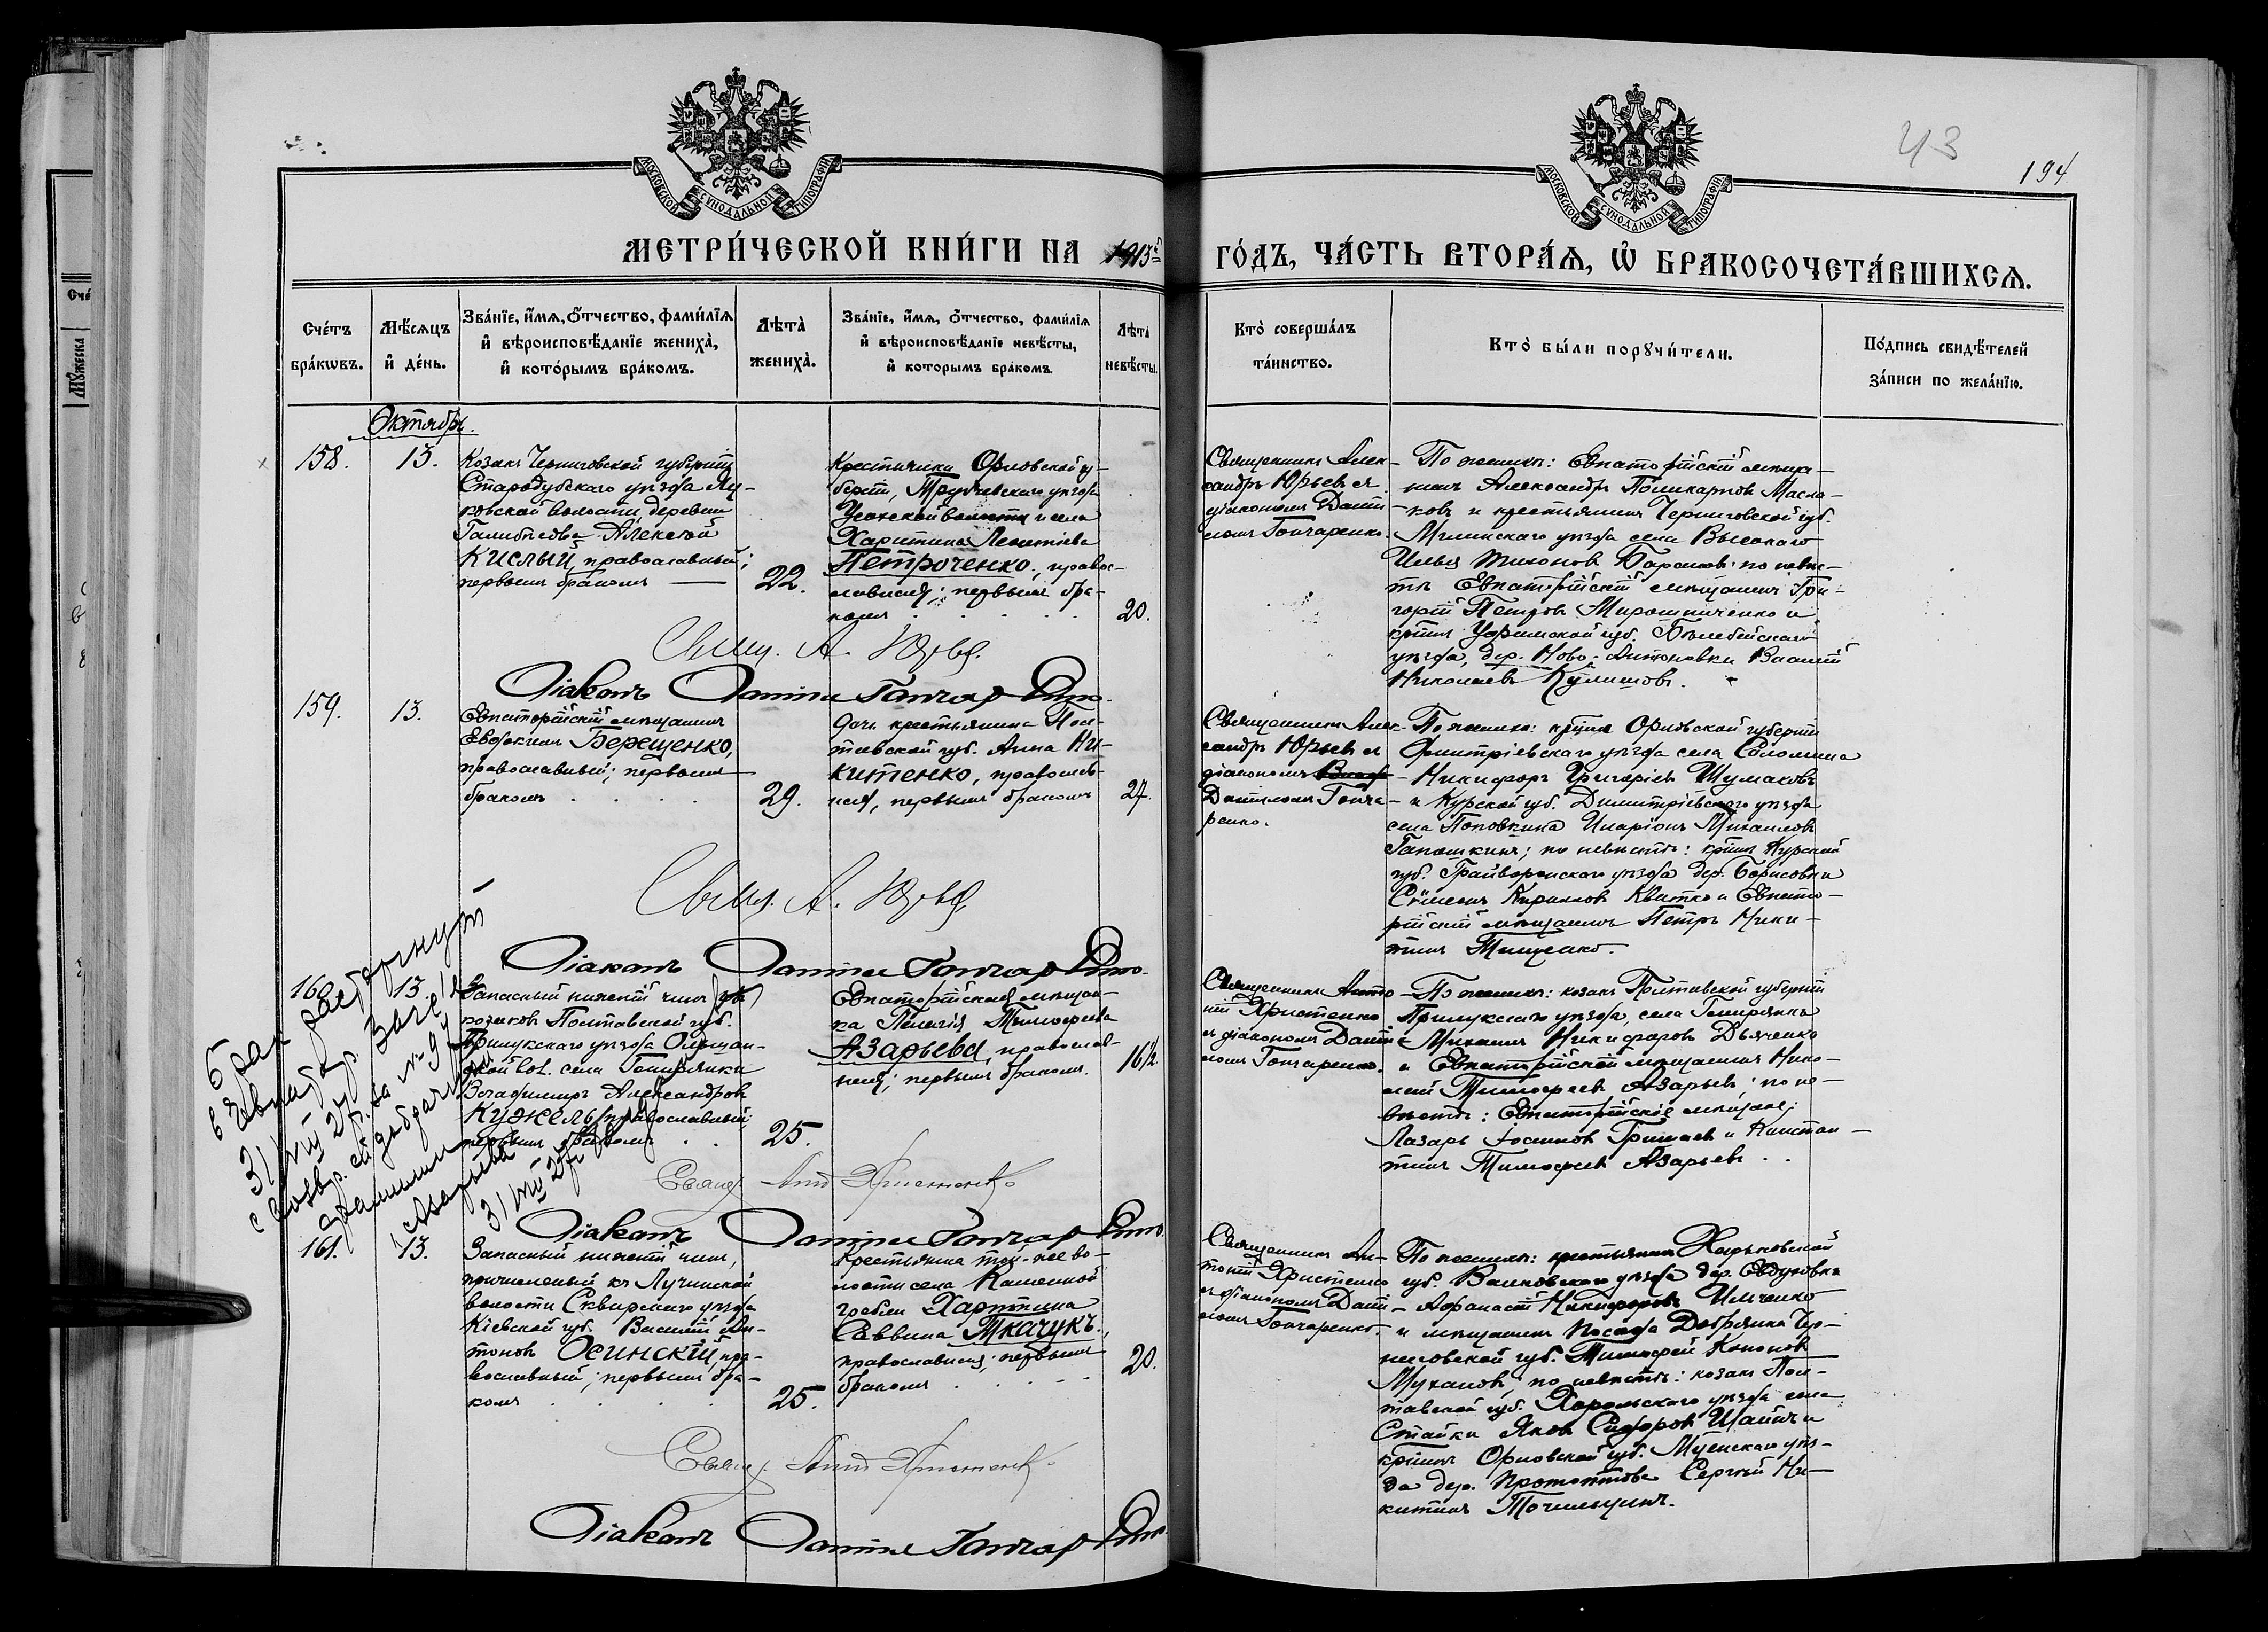 43
194
МОСКОВСКОЙ СѴНОДАЛЬНОЙ ТИПОГРАФІИ
МОСКОВСКОЙ СѴНОДАЛЬНОЙ ТИПОГРАФІИ
МЕТРИ́ЧЕСКОЙ КНИ́ГИ НА 1913й
ГО́ДЪ, ЧА́СТЬ ВТОРА́Ѧ, Ѡ҆ БРАКОСОЧЕТА́ВШИХСѦ.
Сче́тъ бра́кѡвъ.
Мѣ́сѧцъ и҆ де́нь.
Зва́нїе, и҆́мѧ, ѻ҆́тчество, фами́лїѧ
и҆ вѣроисповѣ́данїе жениха̀,
и҆ кото́рымъ бра́комъ.
Лѣта̀ жениха̀.
Зва́нїе, и҆́мѧ, ѻ҆́тчество, фами́лїѧ
и҆ вѣроисповѣ́данїе невѣ́сты,
и҆ которымъ бра́комъ
Лѣта невѣ́сты.
Кто̀ соверша́лъ
та́инство.
Кто̀ бы́ли порꙋчи́тели.
По́дпись свидѣ́телей
за́писи по жела́нїю.
Октябрь.
158.
13.
Козакъ Черниговской губерніи
Стародубскаго уѣзда Лу-
ковской волости, деревни
Алексѣй
Кислый, православный;
первымъ бракомъ
22.
Крестьянка Орловской гу-
берніи, Трубчевскаго уѣзда
Усохской волости и села
Харитина Леонтіева
Петроченко, право-
славная; первымъ бра-
комъ
20.
Священникъ Алек-
сандръ Юрьевъ и
діакономъ Даніи-
ломъ Гончаренко.
По женихѣ: Евпаторійскій мѣща-
нинъ Александръ Поликарповъ Масла-
ковъ и крестьянинъ Черниговской губ.
Мглинскаго уѣзда села Высокаго
Илья Тихоновъ; по невѣс-
тѣ Евпаторійскій мѣщанинъ Гри-
горій Петровъ Мирошниченко и
кр̃тнинъ Уфимской губ. Белебейскаго
уѣзда, дер. Ново-Антоновки Василій
Николаевъ Кулишовъ.
Свящ. А. Юрьевъ
Діаконъ Даніилъ Гончаренко.
159.
13.
Евпаторійскій мѣщанинъ
Евдокимъ Берещенко,
православный; первымъ
бракомъ
29.
Дочь крестьянина Пол-
тавской губ. Анна Ни-
китенко, православ-
ная, первымъ бракомъ
27.
Священникъ Алек-
сандръ Юрьевъ и
діакономъ
Даніиломъ Гонча-
ренко.
По женихѣ: кр̃тнинъ Орловской губерніи
Дмитріевскаго уѣзда села Соломина
Никифоръ Григорьевъ Шумаковъ
и Курской губ. Димитріевскаго уѣзда
села Поповкина Иларіонъ Михаиловъ
Гапошкинъ; по невѣстѣ: кр̃тнинъ Курской
губ. Грайворонскаго уѣзда дер. Борисовки
Сѵмеонъ Кириловъ Квитко и Евпато-
рійскій мѣщанинъ Петръ Ники-
тинъ Тищенко.
Свящ. А. Юрьевъ
Діаконъ Даніилъ Гончаренко.
160.
13
Запасный нижній чинъ изъ
козаковъ Полтавской губ.
Прилукскаго уѣзда Ольшан-
ской вол. села
Владимиръ Александровъ
Кужель, православный;
первымъ бракомъ
25.
Евпаторійская мѣщан-
ка Пелагія Тимоѳеева
Азарьева, православ-
ная; первымъ бракомъ.
16½
Священникъ Анто-
ній Христенко
и діакономъ Даніи-
ломъ Гончаренко.
По женихѣ: козакъ Полтавской губерніи
Прилукскаго уѣзда, села
Михаилъ Никифоровъ Дьяченко
и Евпаторійскій мѣщанинъ Нико-
лай Тимоѳеевъ Азарьевъ; по не-
вѣстѣ: Евпаторійскіе мѣщане:
Лазарь Іосифовъ и Констан-
тинъ Тимоѳеевъ Азарьевъ.
Свящ. Ант Христенко
Діаконъ Даніилъ Гончаренко.
Брак расторгнут
в Евпатор. Загсе
31/VIII 27 г. за № 94
с возвр. ей добрачной
фамилии
Азарьева
31/VIII 27 г.
161.
13.
Запасный нижній чинъ,
причисленный къ Лучинской
волости Сквирскаго уѣзда
Кіевской губ. Василій Ан-
тоновъ Осинскій, пра-
вославный; первымъ бра-
комъ
25.
Крестьянка той-же во-
лости села Каменной
гребли Харитина
Саввина Ткачукъ,
православная; первымъ
бракомъ
20.
Священникъ Ан-
тоній Христенко
и діакономъ Даніи-
ломъ Гончаренко.
По женихѣ: крестьянинъ Харьковской
губ. Валковскаго уѣзда дер.
Аѳанасій Никифоровъ Ильченко
и мѣщанинъ Посада Добрянка Чер-
ниговской губ. Тимоѳей Кононовъ
Мухановъ, по невѣстѣ: козакъ Пол-
тавской губ. Хорольскаго уѣзда села
Стайки Яковъ Сидоровъ и
кр̃тнинъ Орловской губ. Мценскаго уѣз-
да дер. Сергѣй Ни-
китинъ Точильщинъ.
Свящ. Ант Христенко
Діаконъ Даніилъ Гончаренко
Сче́
Мꙋ́жеска